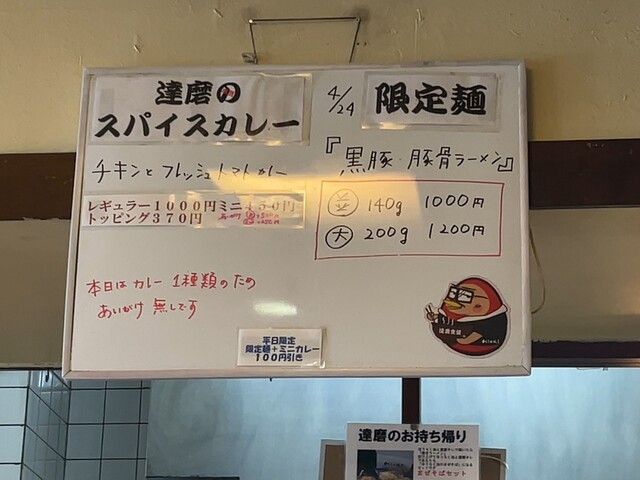 達磨の
スパイスカレー
チキンとフレッシュトマトカレー
レギュラー1000円ミニ450円
トッピング370円
本日はカレー1種類のため
あいがけ無しです
4/24
限定麺
『黒豚・豚骨ラーメン』
並 140g 1000円
大 200g 1200円
平日限定
限定麺+ミニカレー
100円引き
達磨のお持ち帰り
まぜそばセット